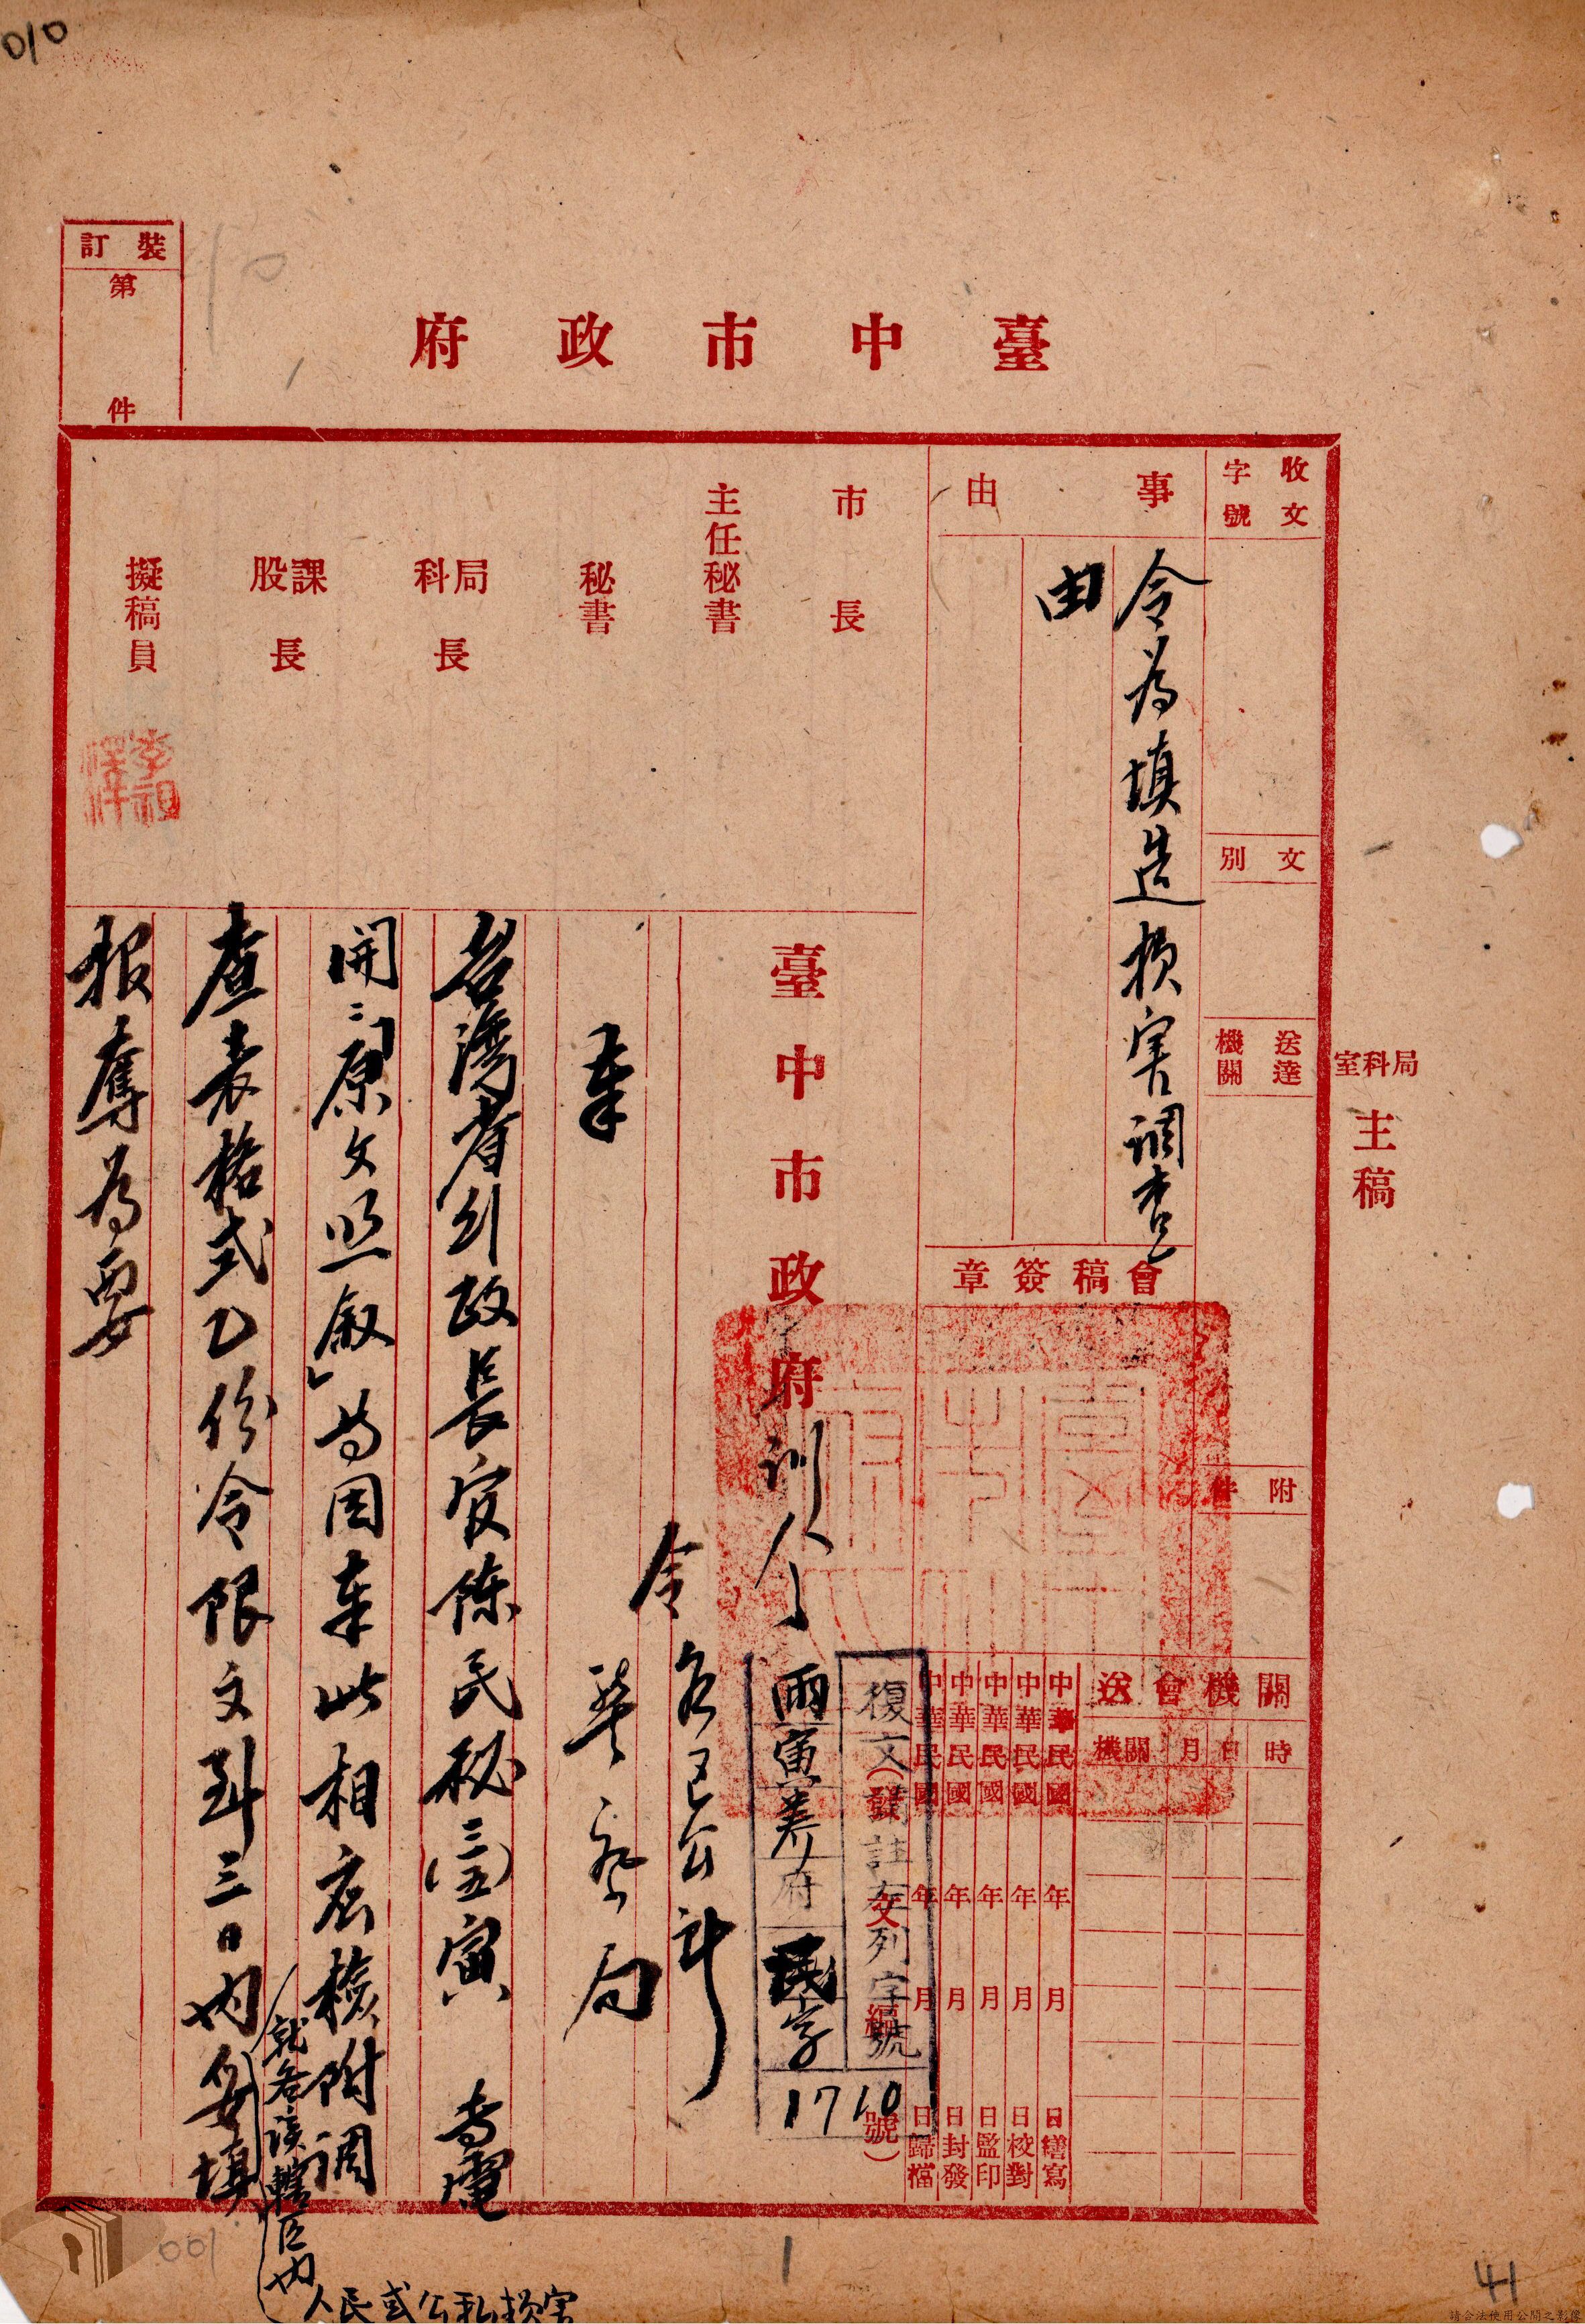 010
裝訂
第 件
臺中市政府
收文
字號
文別
送達
機關
附件
局科室
主稿
事由
令為填造損害調查
由
會稿簽章
送會機關
機關 月 日 時
中華民國 年 月 日繕寫
中華民國 年 月 日校對
中華民國 年 月 日監印
中華民國 年 月 日封發
中華民國 年 月 日歸檔
文 編 號)
市長
主任秘書
秘書
局科長
課股長
擬稿員
李祖澤
復文(請註左列字號
臺中市政府訓令
雨寅養府民字
1710
令
各區公所
警察局
奉
台灣省行政長官陳民秘(三五)寅 專電
開:「原文照敘」等因奉此相應檢附調
查表格式乙份令限文到三日內妥填
就各該轄區內
人民或公私損害
報奪為要
001
1
41
請合法使用公開之影像